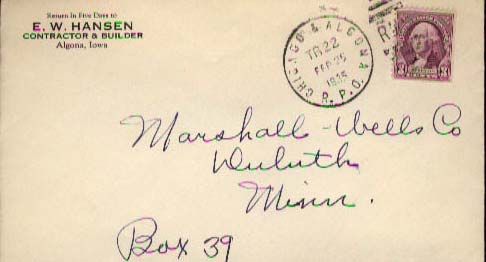 Return in Five Days to
E. W. HANSEN
CONTRACTOR & BUILDER
Algona, Iowa
CHICAGO & ALGONA
TR 22
FEB 25
1935
R. P. O.
3
3
Marshall-Wells Co
Duluth
Minn.
Box 39